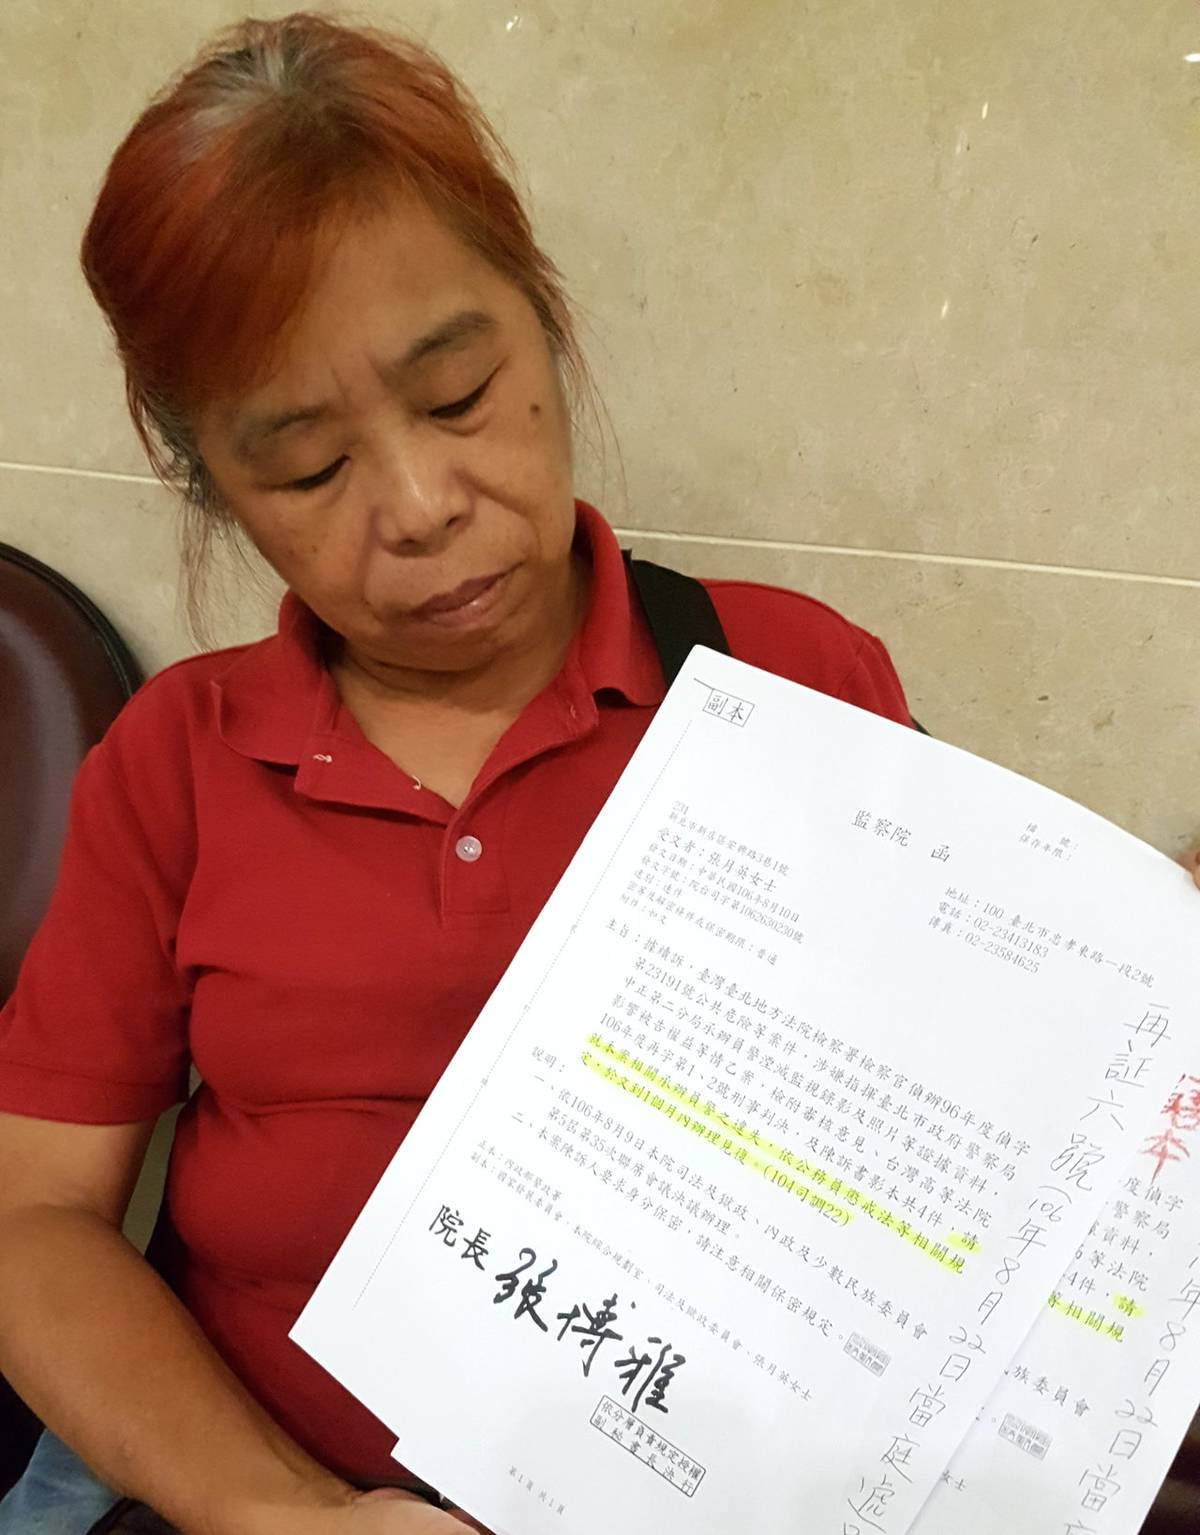 副本
監察院 函
檔　號：
保存年限：
地址：100 臺北市忠孝東路一段2號
電話：02-23413183
傳真：02-23584625
231
新北市新店區安興路3巷1號
受文者：張月英女士
發文日期：中華民國106年8月10日
發文字號：院台司字第1062630230號
速別：速件
密等及解密條件或保密期限：普通
附件：如文
主旨：據續訴，臺灣臺北地方法院檢察署檢察官偵辦96年度偵字
第23191號公共危險等案件，涉嫌指揮臺北市政府警察局
中正第二分局承辦員警湮滅監視錄影及照片等證據資料，
影響被告權益等情乙案，檢附審核意見、台灣高等法院
106年度再字第1、2號刑事判決、及陳訴書影本共4件，請
就本案相關承辦員警之違失，依公務員懲戒法等相關規
定，於文到1個月內辦理見復。(104司調22)
說明：
一、依106年8月9日本院司法及獄政、內政及少數民族委員會
第5屆第35次聯席會議決議辦理。
二、本案陳訴人要求身分保密，請注意相關保密規定。
正本：內政部警政署
副本：國家發展委員會、本院綜合規劃室、司法及獄政委員會、張月英女士
院長 張博雅
依分層負責規定授權
副秘書長決行
第1頁 共1頁
再証六號(106年8月22日當庭遞
本
度偵字
警察局
據資料，
等法院
4件，請
等相關規
族委員會
女士
年8月22日當